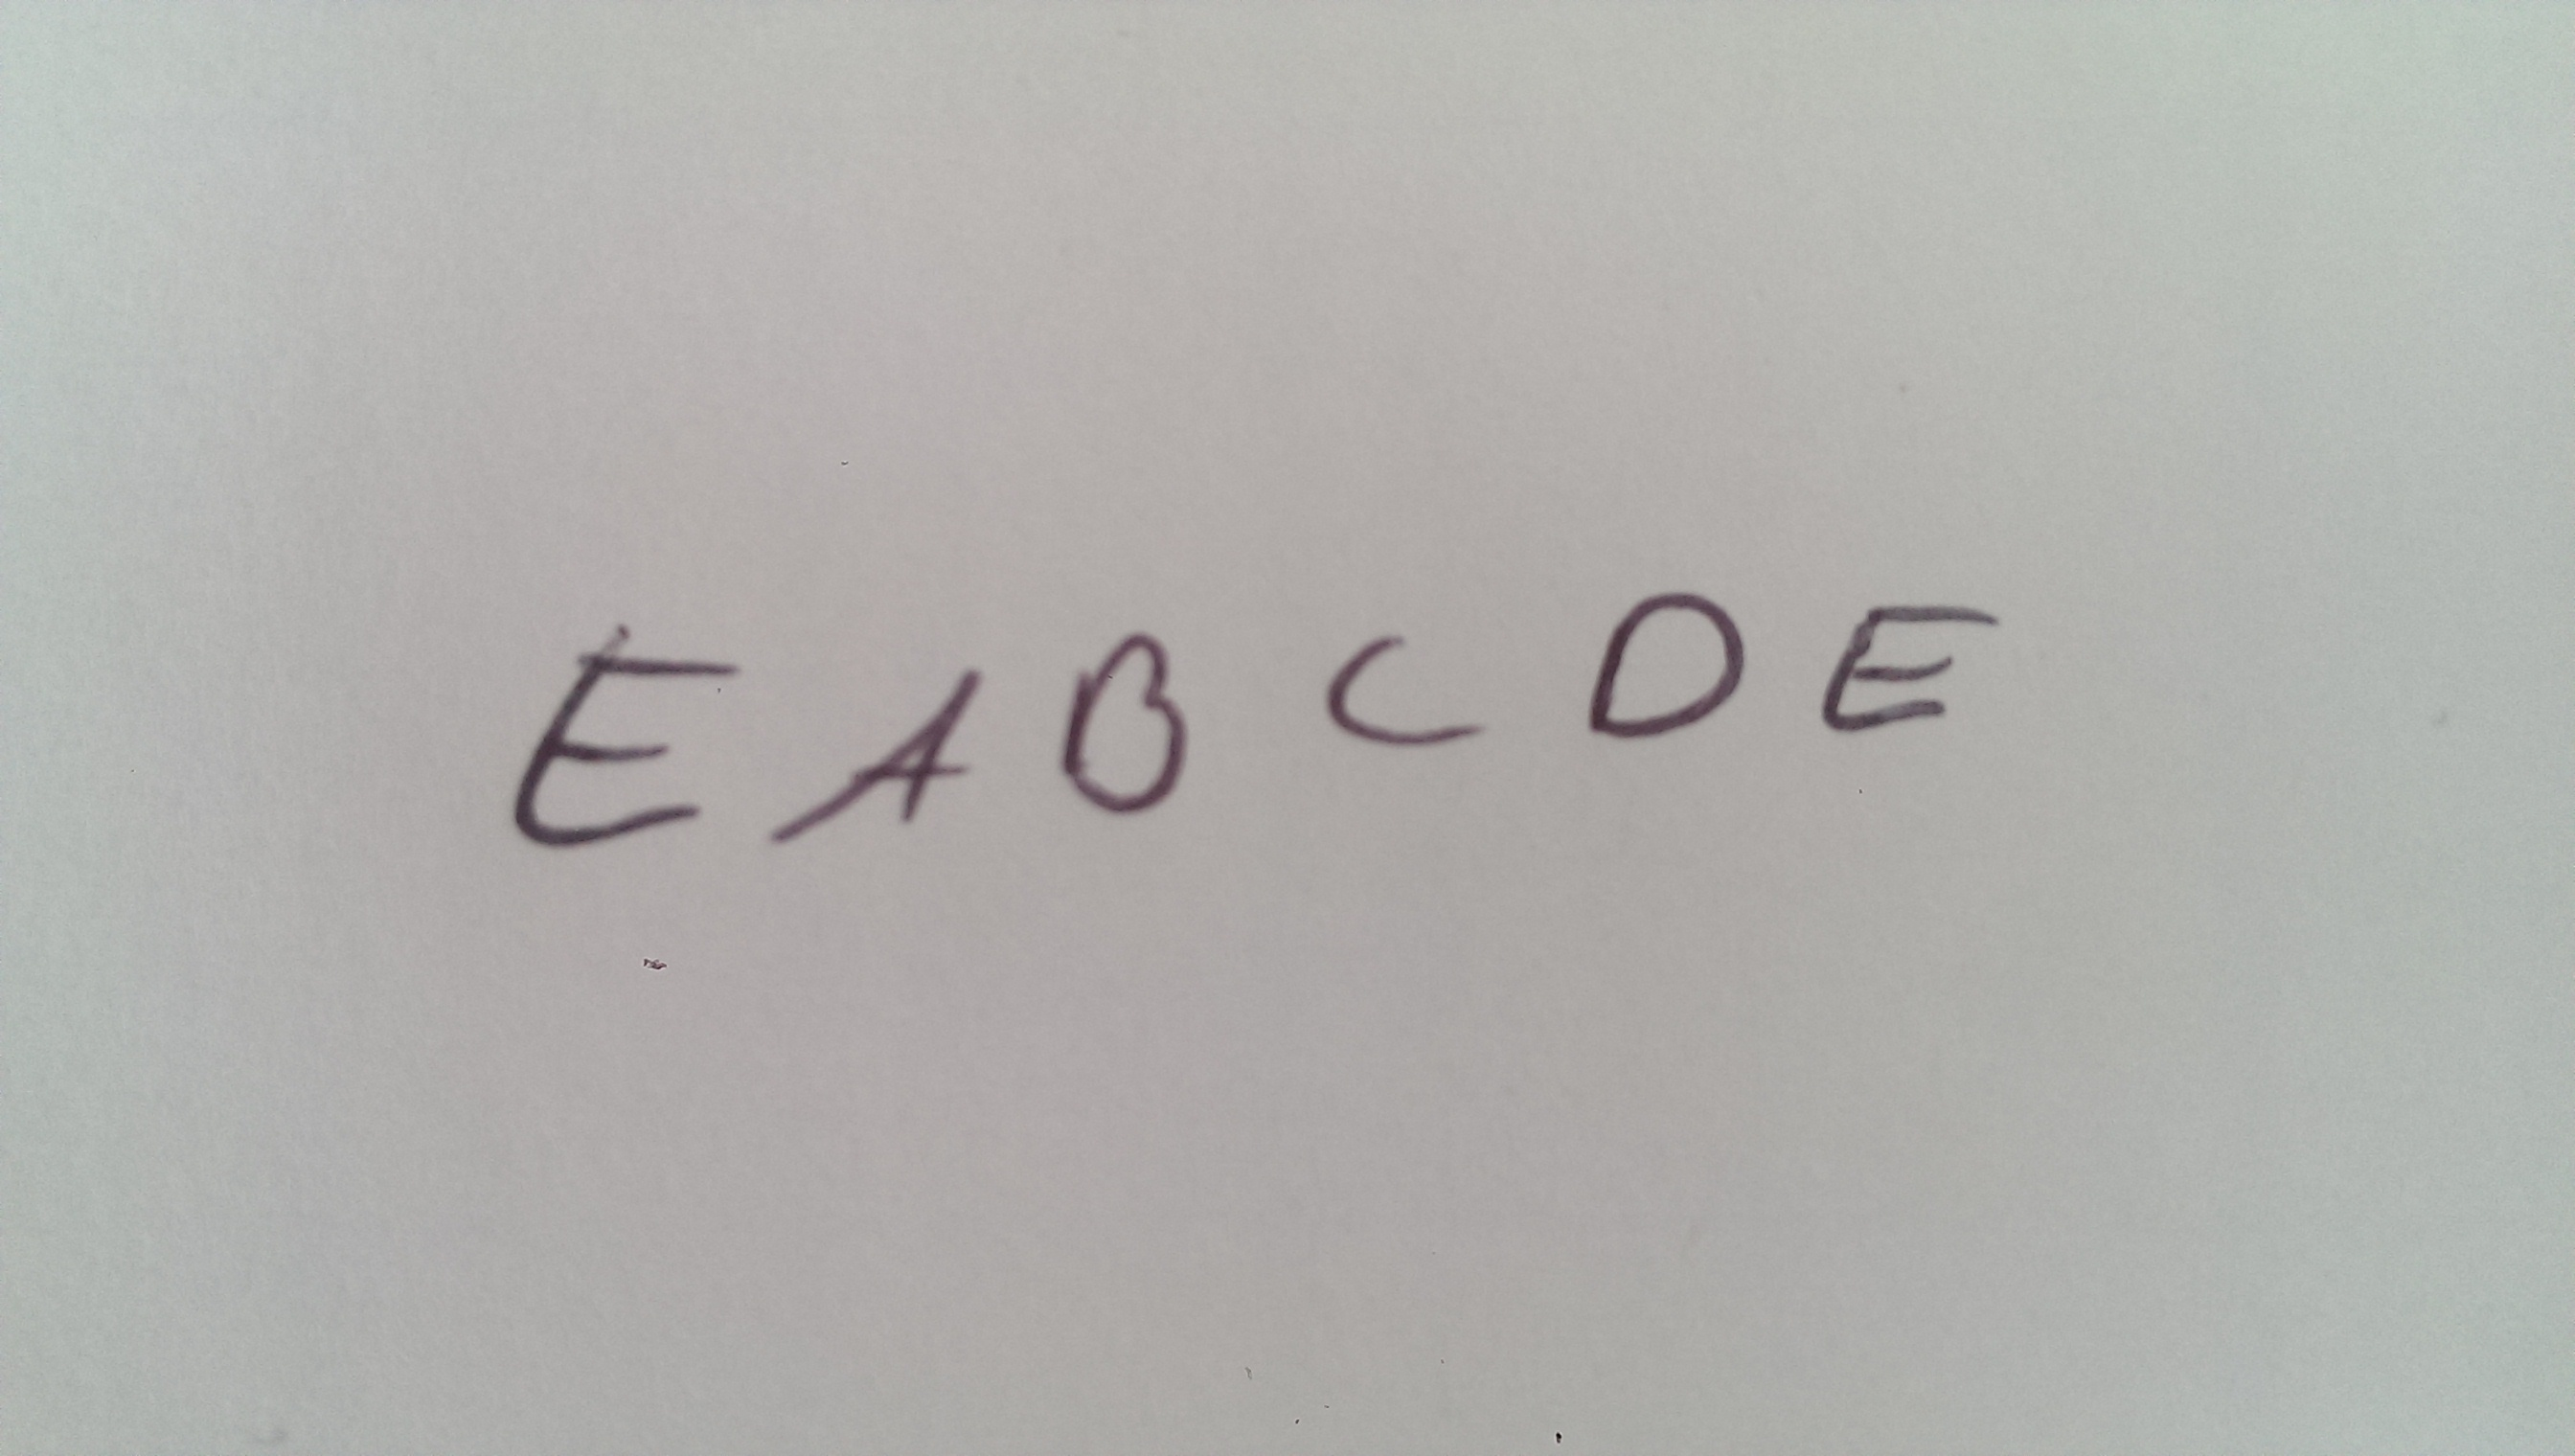 E A B C D E